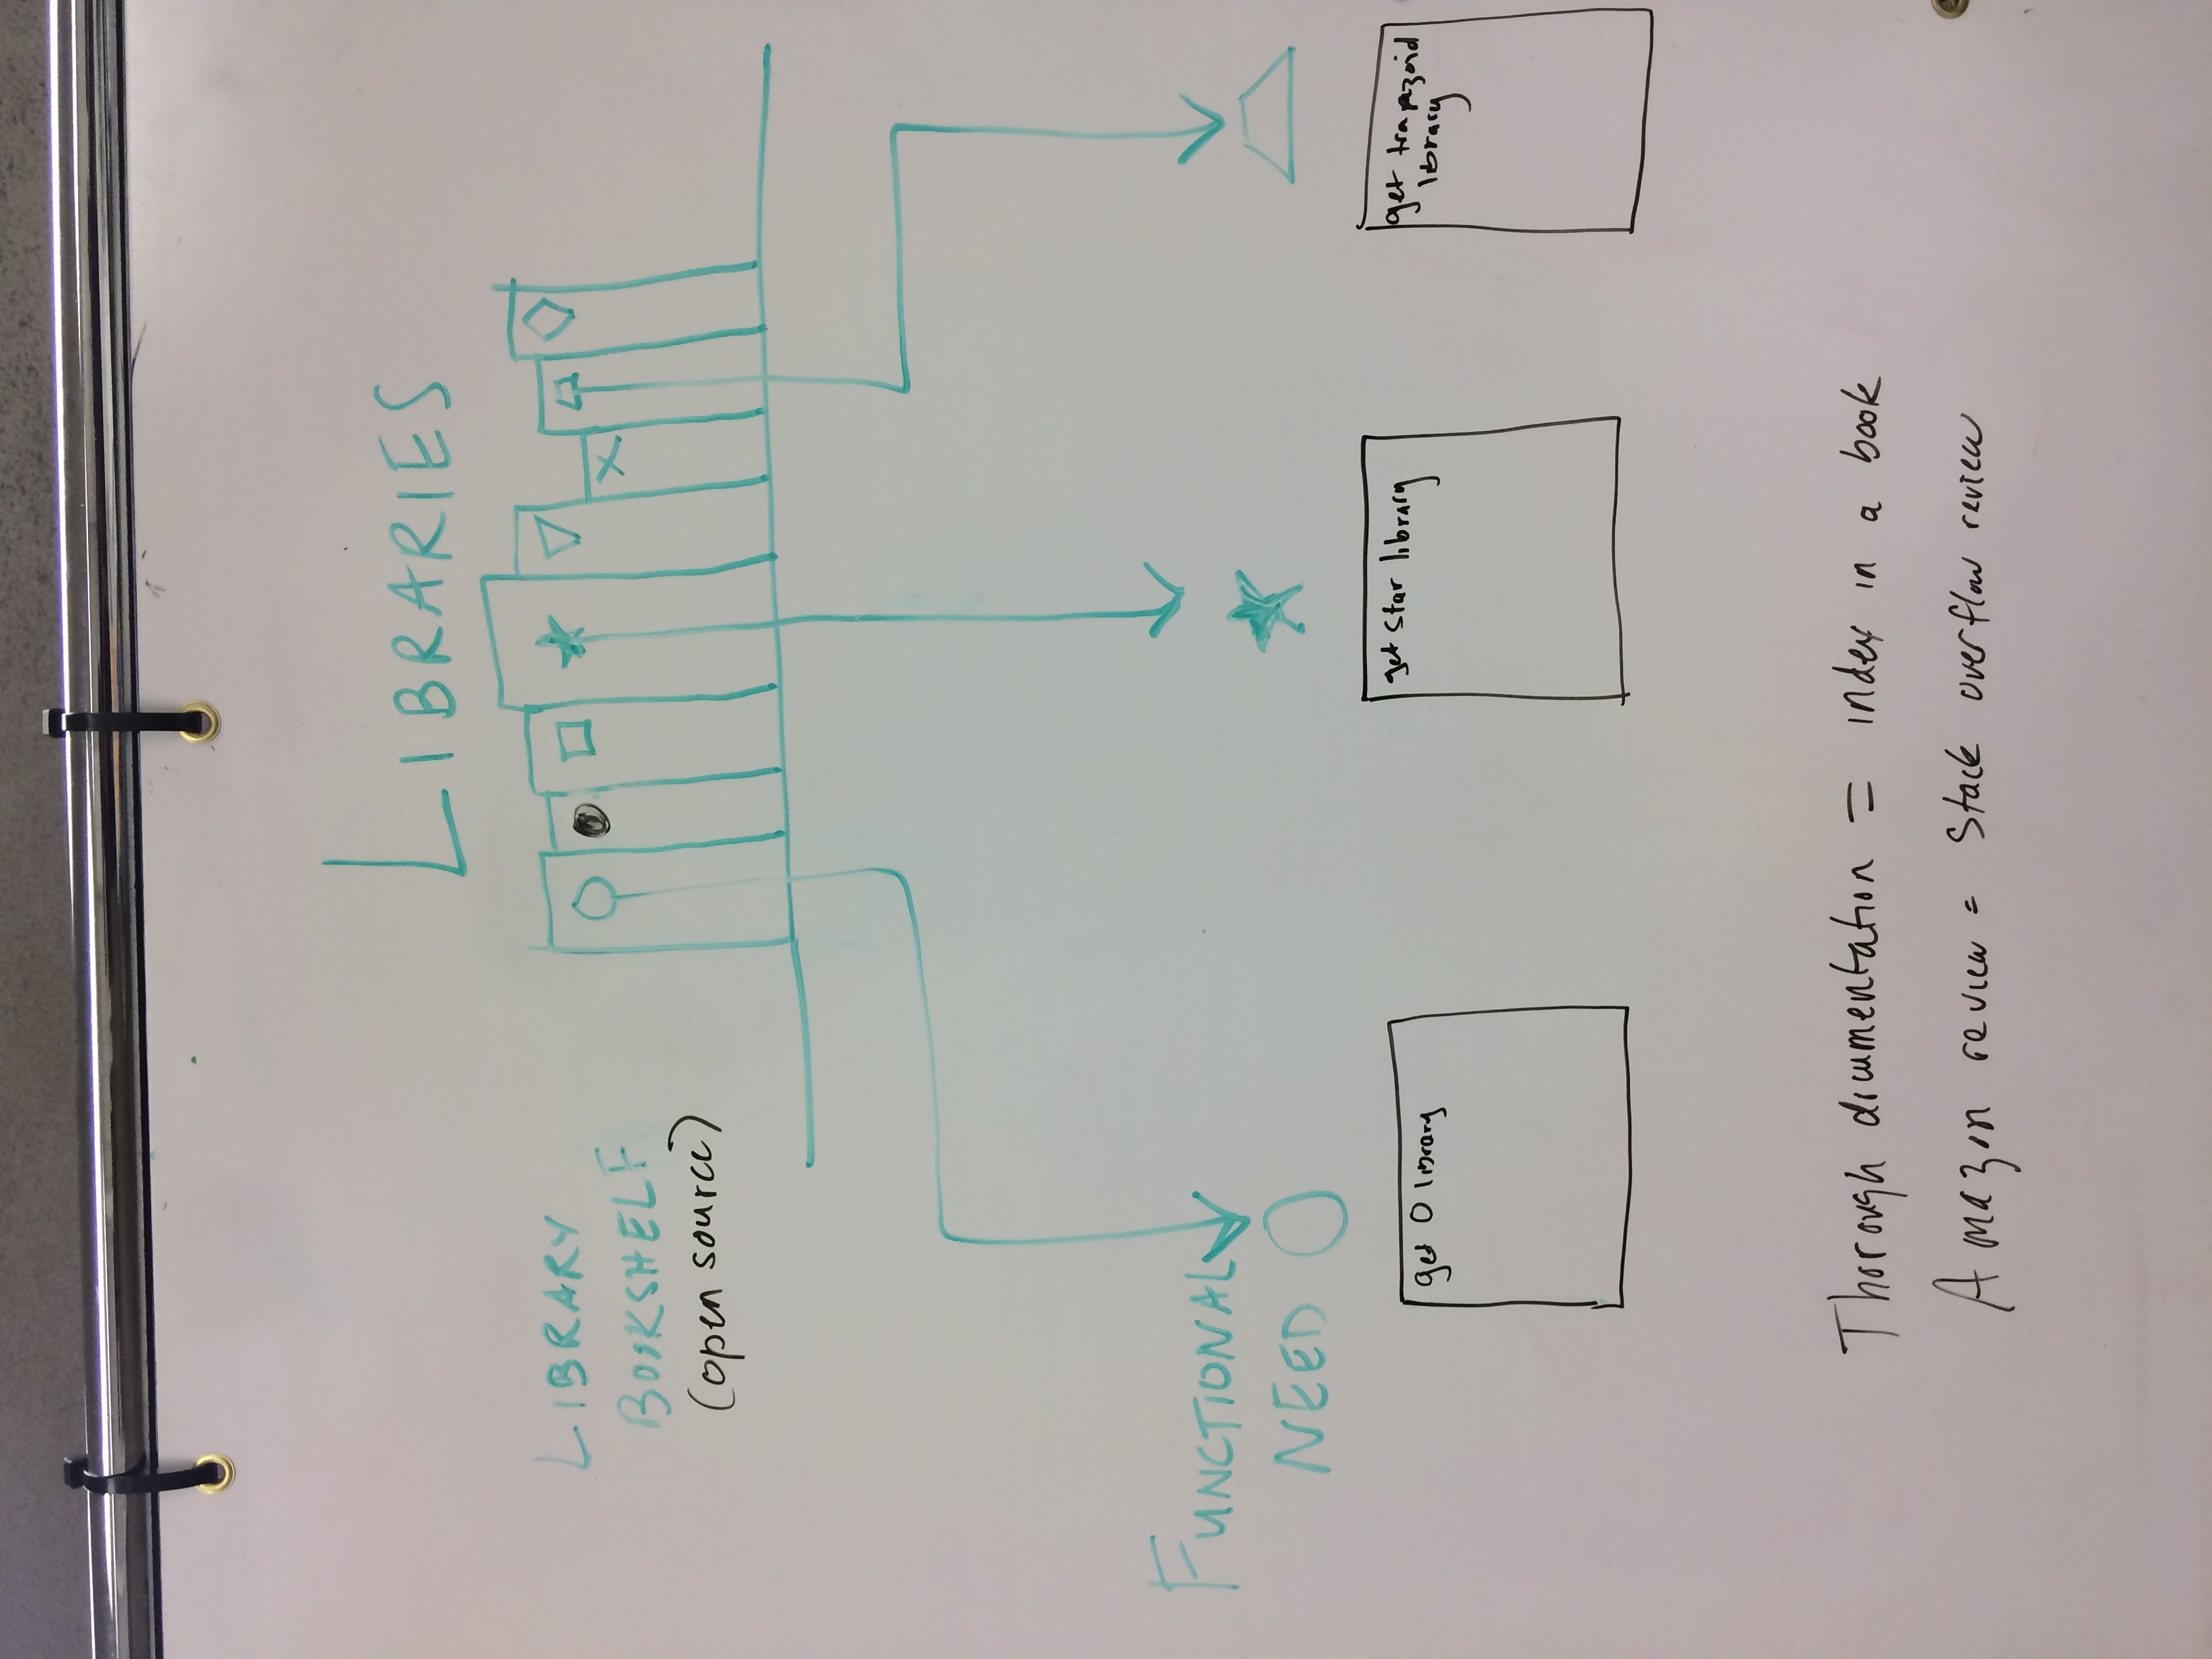 LIBRARIES
LIBRARY
BOOKSHELF
(open source)
FUNCTIONAL
NEED
get O library
get star library
get trapazoid
library
Thorough documentation = index in a book
Amazon review = Stack overflow review